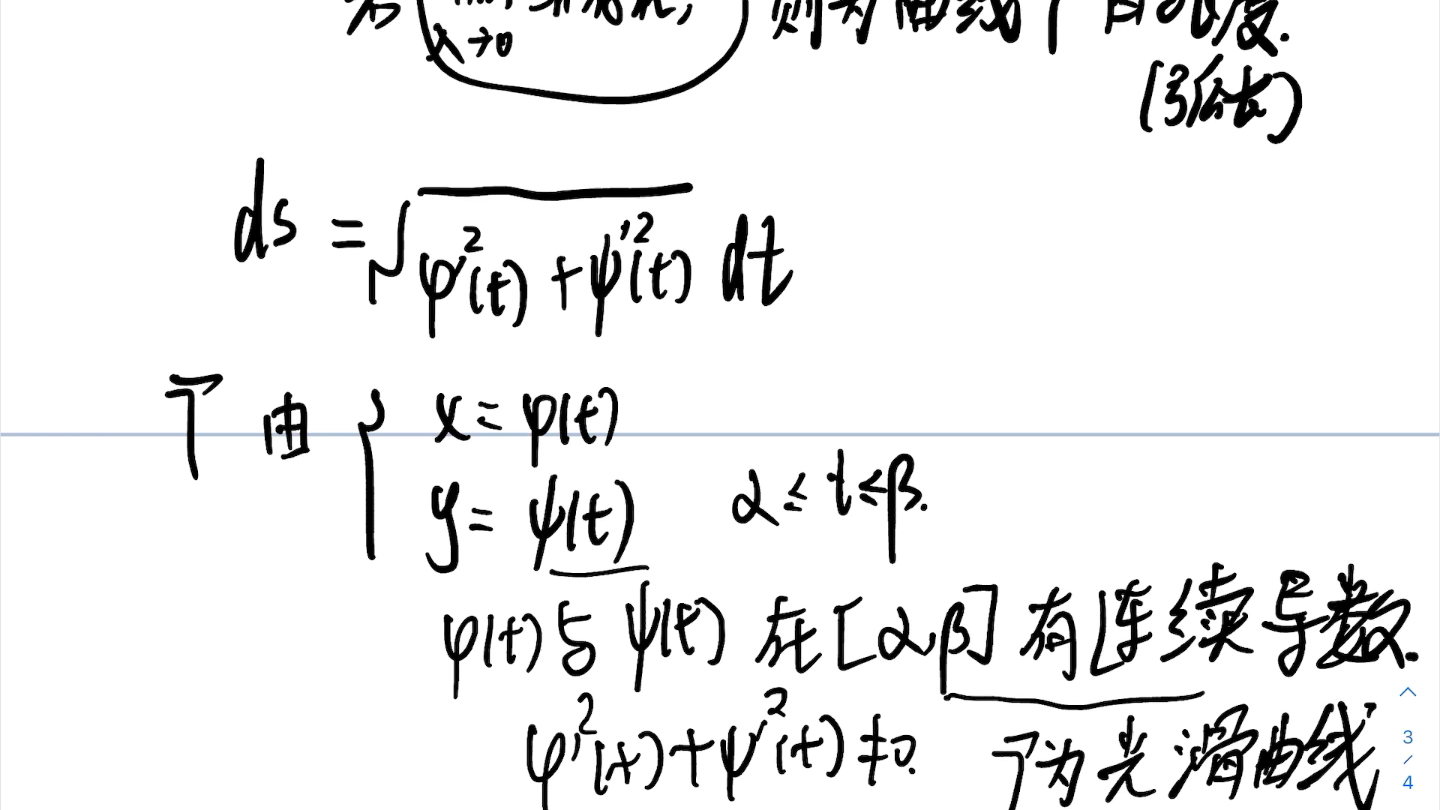 λ→0 则为曲线Γ的长度.
(弧长)
ds = √(φ'²(t) + ψ'²(t)) dt
Γ 由 { x = φ(t)
y = ψ(t) α ≤ t ≤ β.
φ(t) 与 ψ(t) 在 [α, β] 有连续导数.
φ'²(t) + ψ'²(t) ≠ 0. Γ为光滑曲线
3
/
4